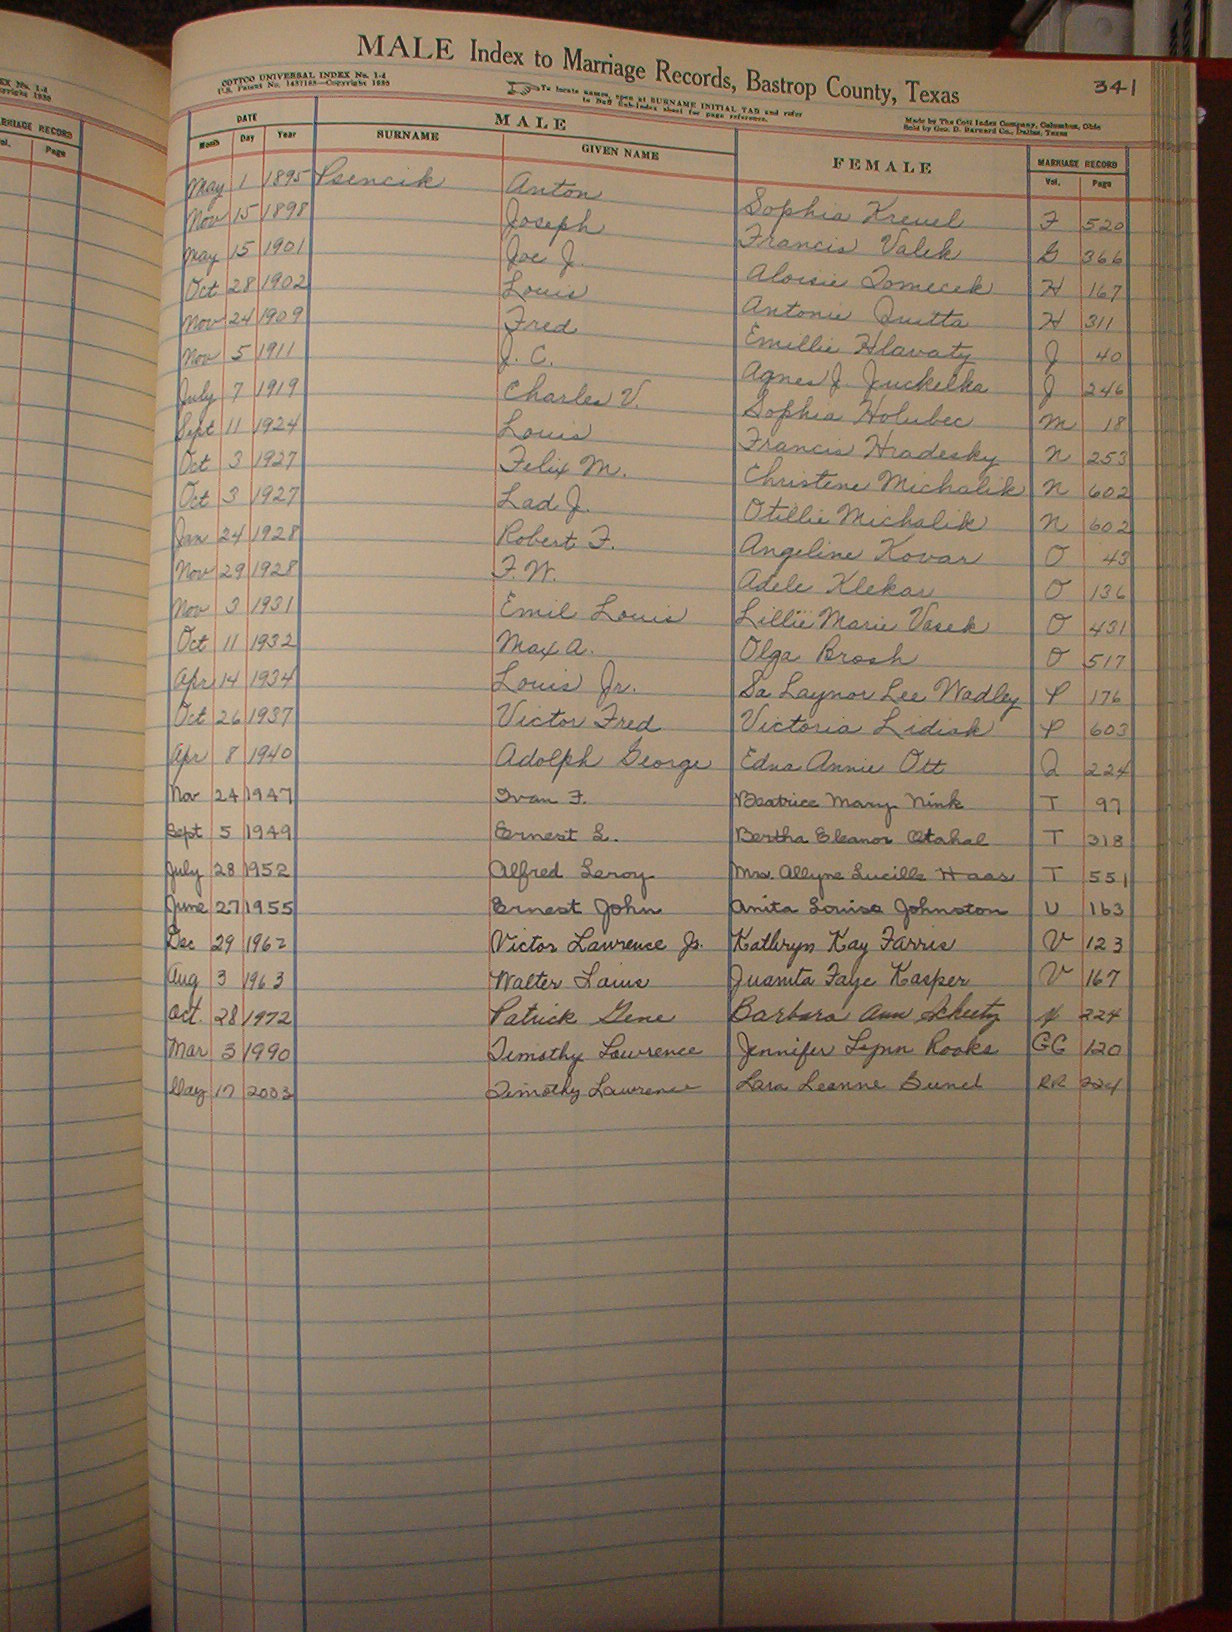 EX No. 1-4
MARRIAGE RECORD
Vol. Page
MALE Index to Marriage Records, Bastrop County, Texas
341
COTTCO UNIVERSAL INDEX No. 1-4
U.S. Patent No. 1437185—Copyright 1930
To locate names, open at SURNAME INITIAL TAB and refer
to Buff Sub-Index sheet for page reference.
Made by The Cott Index Company, Columbus, Ohio
Sold by Geo. D. Barnard Co., Dallas, Texas
DATE MALE FEMALE MARRIAGE RECORD
Month Day Year SURNAME GIVEN NAME Vol. Page
May 1 1895 Psencik Anton Sophia Kreuel F 520
Nov 15 1898 Joseph Francis Valek G 366
May 15 1901 Joe J. Aloisie Tomecek H 167
Oct 28 1902 Louis Antonie Quitta H 311
Nov 24 1909 Fred Emillie Hlavaty J 40
Nov 5 1911 J. C. Agnes J. Juckelka J 246
July 7 1919 Charles V. Sophia Holubec M 18
Sept 11 1924 Louis Francis Hradesky N 253
Oct 3 1927 Felix M. Christene Michalik N 602
Oct 3 1927 Lad J. Otillie Michalik N 602
Jan 24 1928 Robert F. Angeline Kovar O 43
Nov 29 1928 F. W. Adele Klekar O 136
Nov 3 1931 Emil Louis Lillie Marie Vasek O 431
Oct 11 1932 Max A. Olga Brosh O 517
Apr 14 1934 Louis Jr. Sa Laynor Lee Wadley P 176
Oct 26 1937 Victor Fred Victoria Lidiak P 603
Apr 8 1940 Adolph George Edna Annie Ott Q 224
Nov 24 1947 Ivan F. Beatrice Mary Nink T 97
Sept 5 1949 Ernest L. Bertha Eleanor Otahal T 318
July 28 1952 Alfred Leroy Mrs. Allyne Lucille Haas T 551
June 27 1955 Ernest John Anita Louise Johnston U 163
Dec 29 1962 Victor Lawrence Jr. Kathryn Kay Farris V 123
Aug 3 1963 Walter Louis Juanita Faye Kasper V 167
Oct. 28 1972 Patrick Gene Barbara Ann 224
Mar 3 1990 Timothy Lawrence Jennifer Lynn Rooks GG 120
May 17 2003 Timothy Lawrence Lara Leanne RR 224